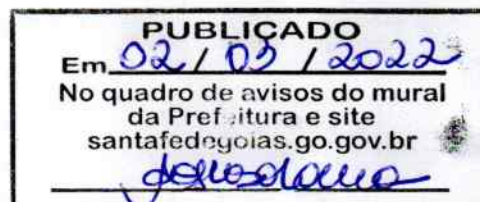 PUBLICADO
Em 02 / 05 / 2022
No quadro de avisos do mural
da Prefeitura e site
santafedegoias.go.gov.br